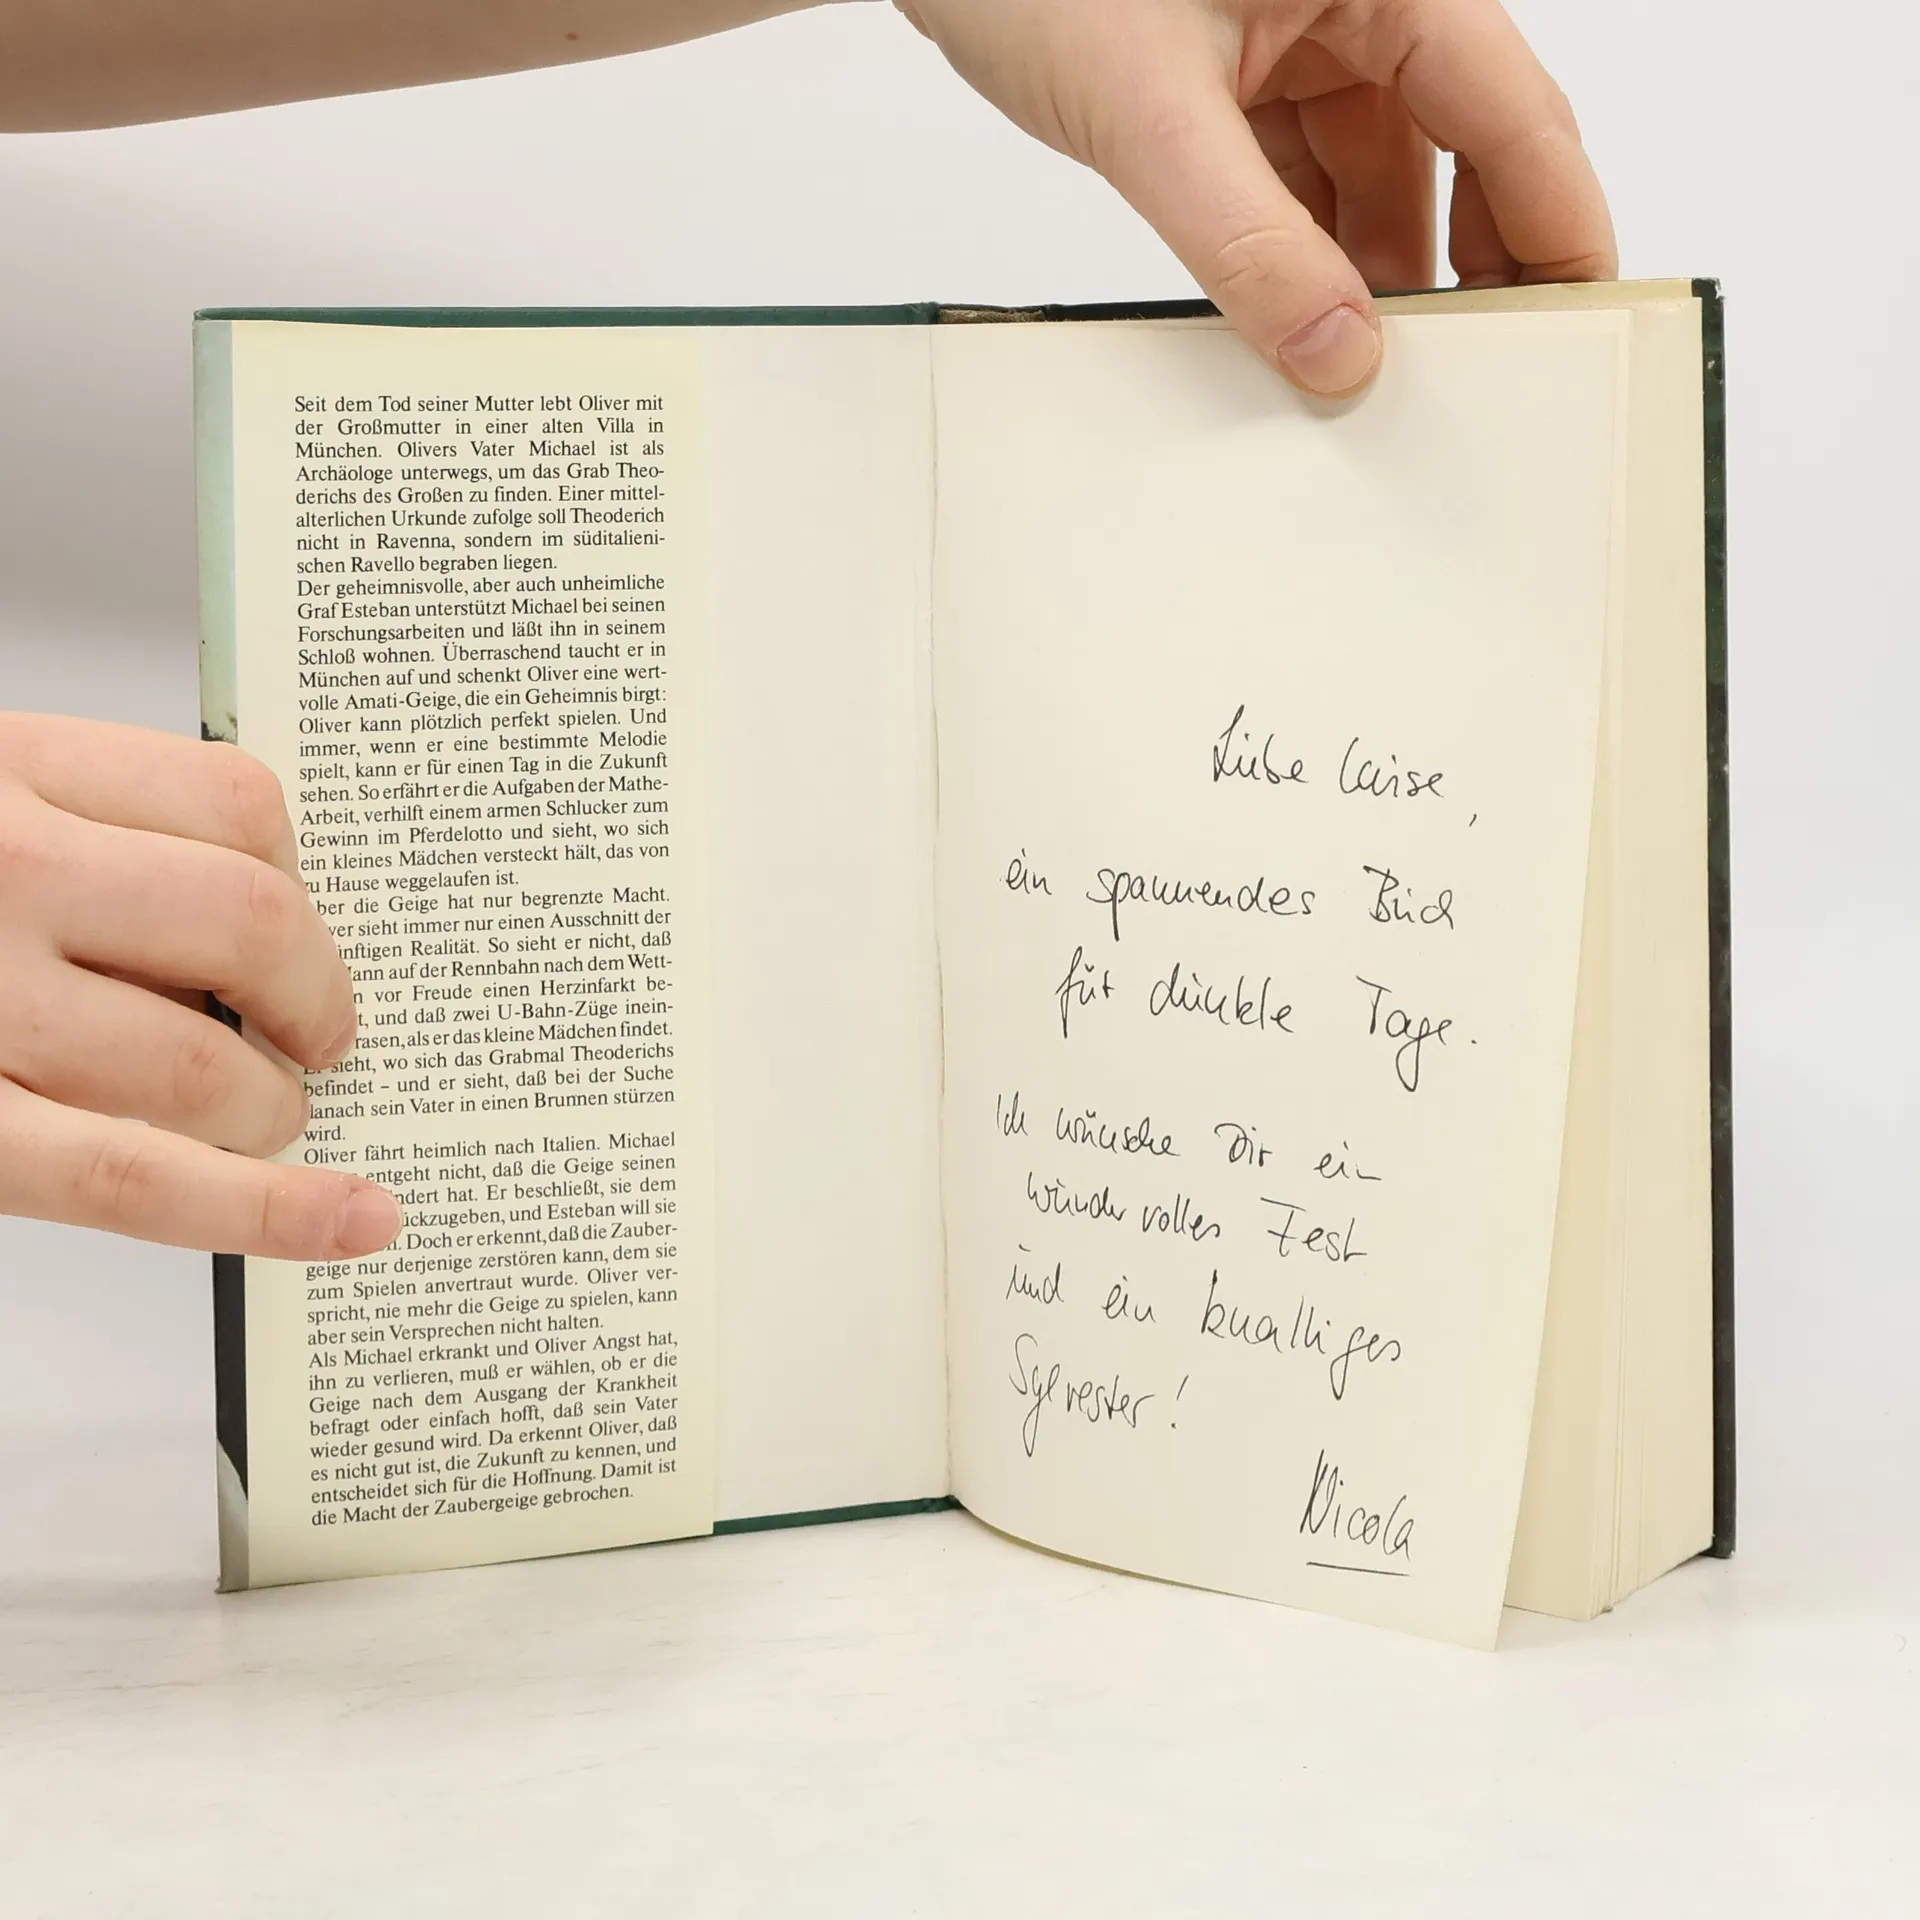 Seit dem Tod seiner Mutter lebt Oliver mit
der Großmutter in einer alten Villa in
München. Olivers Vater Michael ist als
Archäologe unterwegs, um das Grab Theo-
derichs des Großen zu finden. Einer mittel-
alterlichen Urkunde zufolge soll Theoderich
nicht in Ravenna, sondern im süditalieni-
schen Ravello begraben liegen.
Der geheimnisvolle, aber auch unheimliche
Graf Esteban unterstützt Michael bei seinen
Forschungsarbeiten und läßt ihn in seinem
Schloß wohnen. Überraschend taucht er in
München auf und schenkt Oliver eine wert-
volle Amati-Geige, die ein Geheimnis birgt:
Oliver kann plötzlich perfekt spielen. Und
immer, wenn er eine bestimmte Melodie
spielt, kann er für einen Tag in die Zukunft
sehen. So erfährt er die Aufgaben der Mathe-
Arbeit, verhilft einem armen Schlucker zum
Gewinn im Pferdelotto und sieht, wo sich
ein kleines Mädchen versteckt hält, das von
zu Hause weggelaufen ist.
ber die Geige hat nur begrenzte Macht.
ver sieht immer nur einen Ausschnitt der
ünftigen Realität. So sieht er nicht, daß
ann auf der Rennbahn nach dem Wett-
n vor Freude einen Herzinfarkt be-
t, und daß zwei U-Bahn-Züge inein-
rasen, als er das kleine Mädchen findet.
Er sieht, wo sich das Grabmal Theoderichs
befindet – und er sieht, daß bei der Suche
danach sein Vater in einen Brunnen stürzen
wird.
Oliver fährt heimlich nach Italien. Michael
entgeht nicht, daß die Geige seinen
ndert hat. Er beschließt, sie dem
ückzugeben, und Esteban will sie
n. Doch er erkennt, daß die Zauber-
geige nur derjenige zerstören kann, dem sie
zum Spielen anvertraut wurde. Oliver ver-
spricht, nie mehr die Geige zu spielen, kann
aber sein Versprechen nicht halten.
Als Michael erkrankt und Oliver Angst hat,
ihn zu verlieren, muß er wählen, ob er die
Geige nach dem Ausgang der Krankheit
befragt oder einfach hofft, daß sein Vater
wieder gesund wird. Da erkennt Oliver, daß
es nicht gut ist, die Zukunft zu kennen, und
entscheidet sich für die Hoffnung. Damit ist
die Macht der Zaubergeige gebrochen.
Liebe Luise,
ein spannendes Buch
für dunkle Tage.
Ich wünsche Dir ein
wundervolles Fest
und ein knalliges
Sylvester!
Nicola